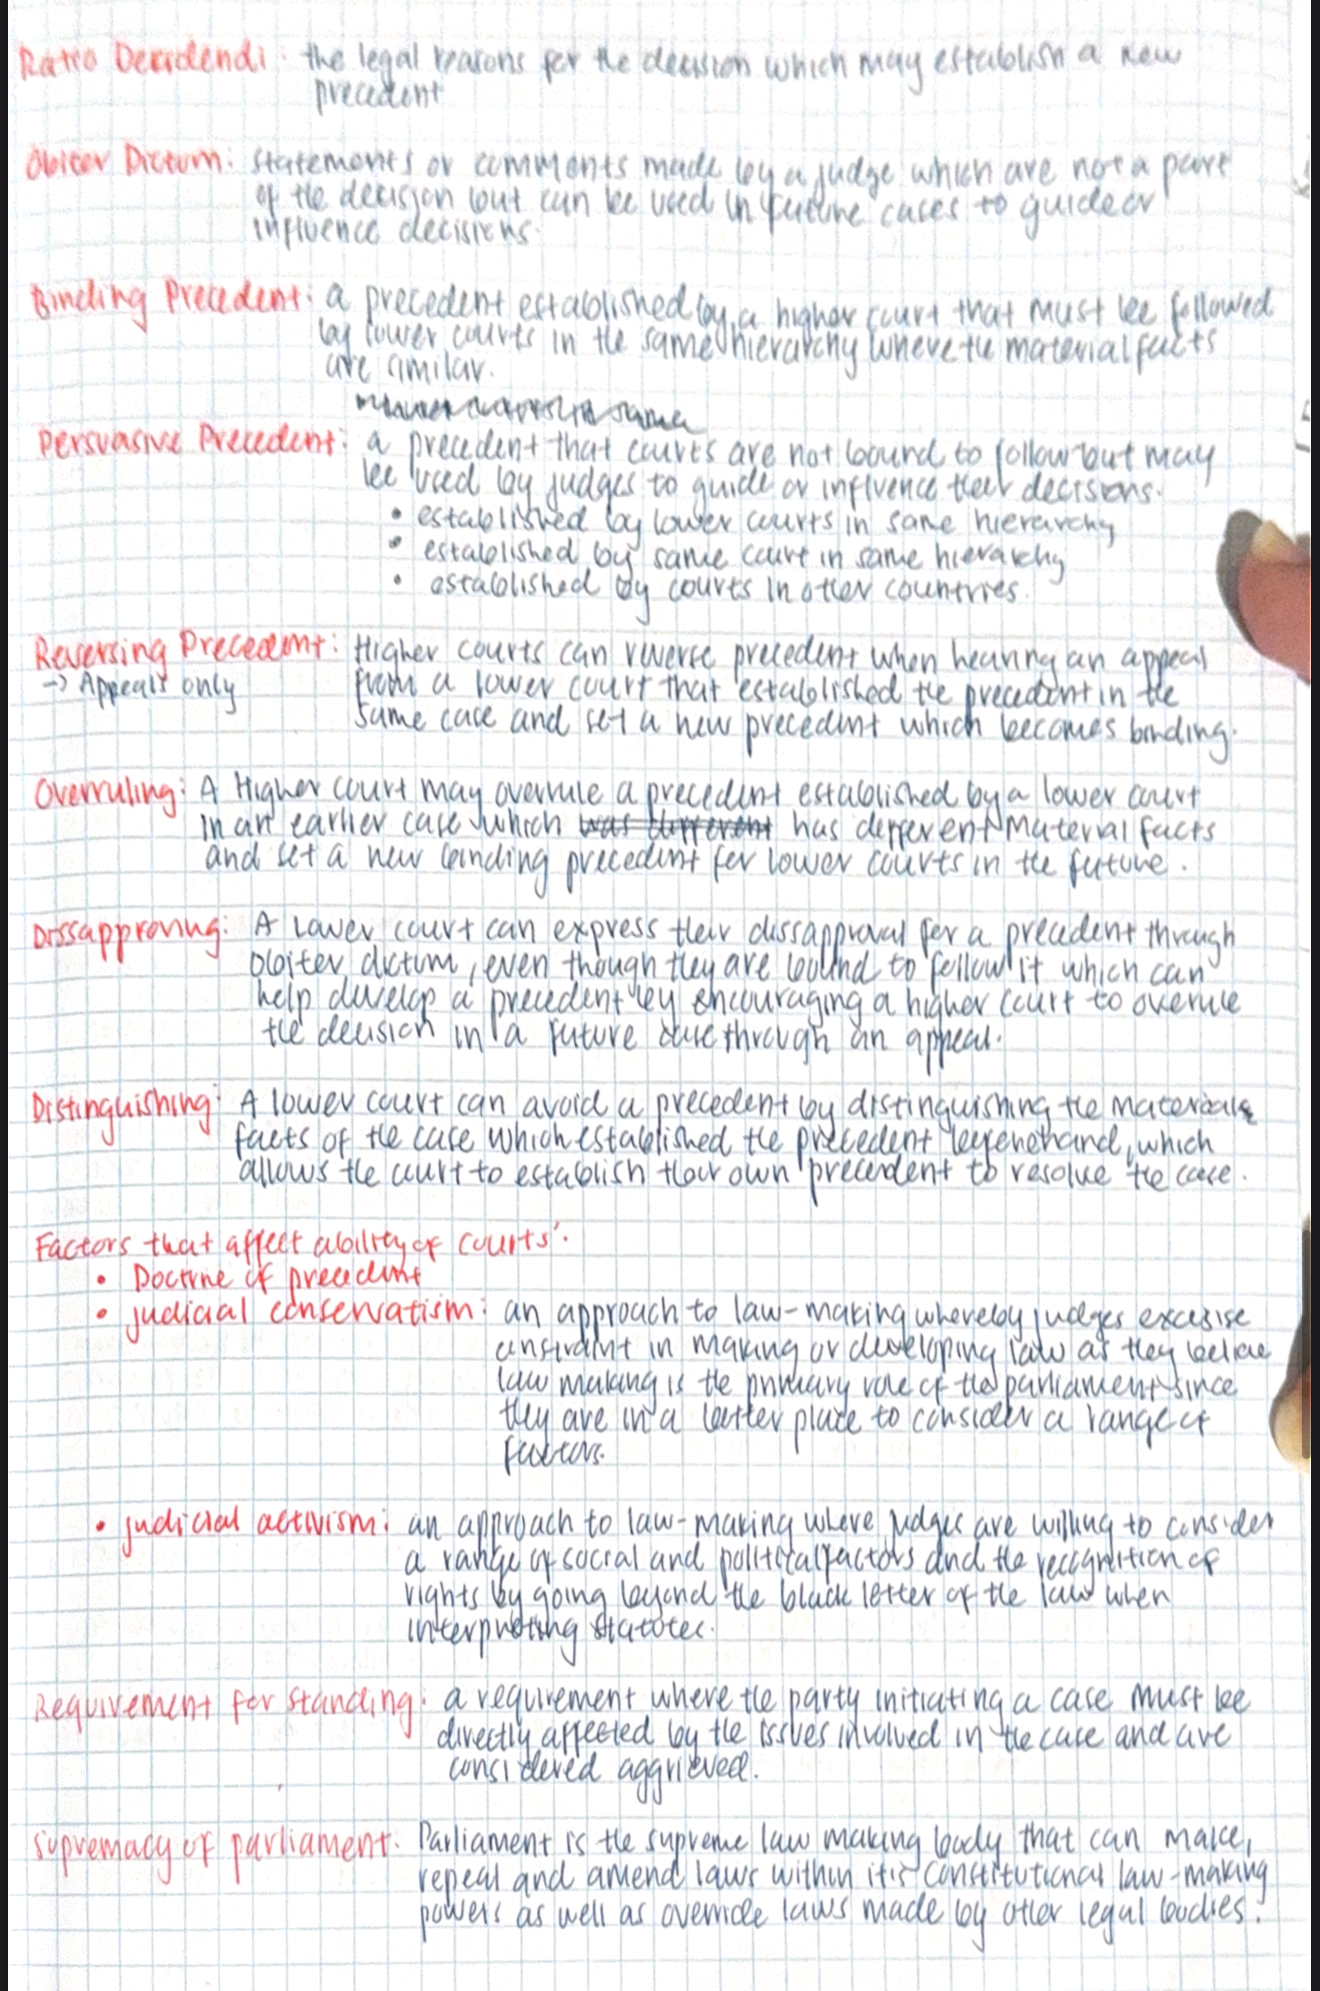 Ratio Decidendi: the legal reasons for the decision which may establish a new
precedent
Obiter Dictum: statements or comments made by a judge which are not a part
of the decision but can be used in future cases to guide or
influence decisions.
Binding Precedent: a precedent established by a higher court that must be followed
by lower courts in the same hierarchy where the material facts
are similar.
Persuasive Precedent: a precedent that courts are not bound to follow but may
be used by judges to guide or influence their decisions.
• established by lower courts in same hierarchy
• established by same court in same hierarchy
• established by courts in other countries.
Reversing Precedent: Higher courts can reverse precedent when hearing an appeal
-> Appeals only from a lower court that established the precedent in the
same case and set a new precedent which becomes binding.
Overruling: A Higher court may overrule a precedent established by a lower court
in an earlier case which was different has different material facts
and set a new binding precedent for lower courts in the future.
Dissapproving: A Lower court can express their dissapproval for a precedent through
obiter dictum, even though they are bound to follow it which can
help develop a precedent by encouraging a higher court to overrule
the decision in a future case through an appeal.
Distinguishing: A lower court can avoid a precedent by distinguishing the material
facts of the case which established the precedent beforehand, which
allows the court to establish their own precedent to resolve the case.
Factors that affect ability of courts:
• Doctrine of precedent
• judicial conservatism: an approach to law-making whereby judges excersise
constraint in making or developing law as they believe
law making is the primary role of the parliament since
they are in a better place to consider a range of
factors.
• judicial activism: an approach to law-making where judges are willing to consider
a range of social and political factors and the recognition of
rights by going beyond the black letter of the law when
interpreting statutes.
Requirement for standing: a requirement where the party initiating a case must be
directly affected by the issues involved in the case and are
considered aggrieved.
Supremacy of parliament: Parliament is the supreme law making body that can make,
repeal and amend laws within it's constitutional law-making
powers as well as override laws made by other legal bodies.